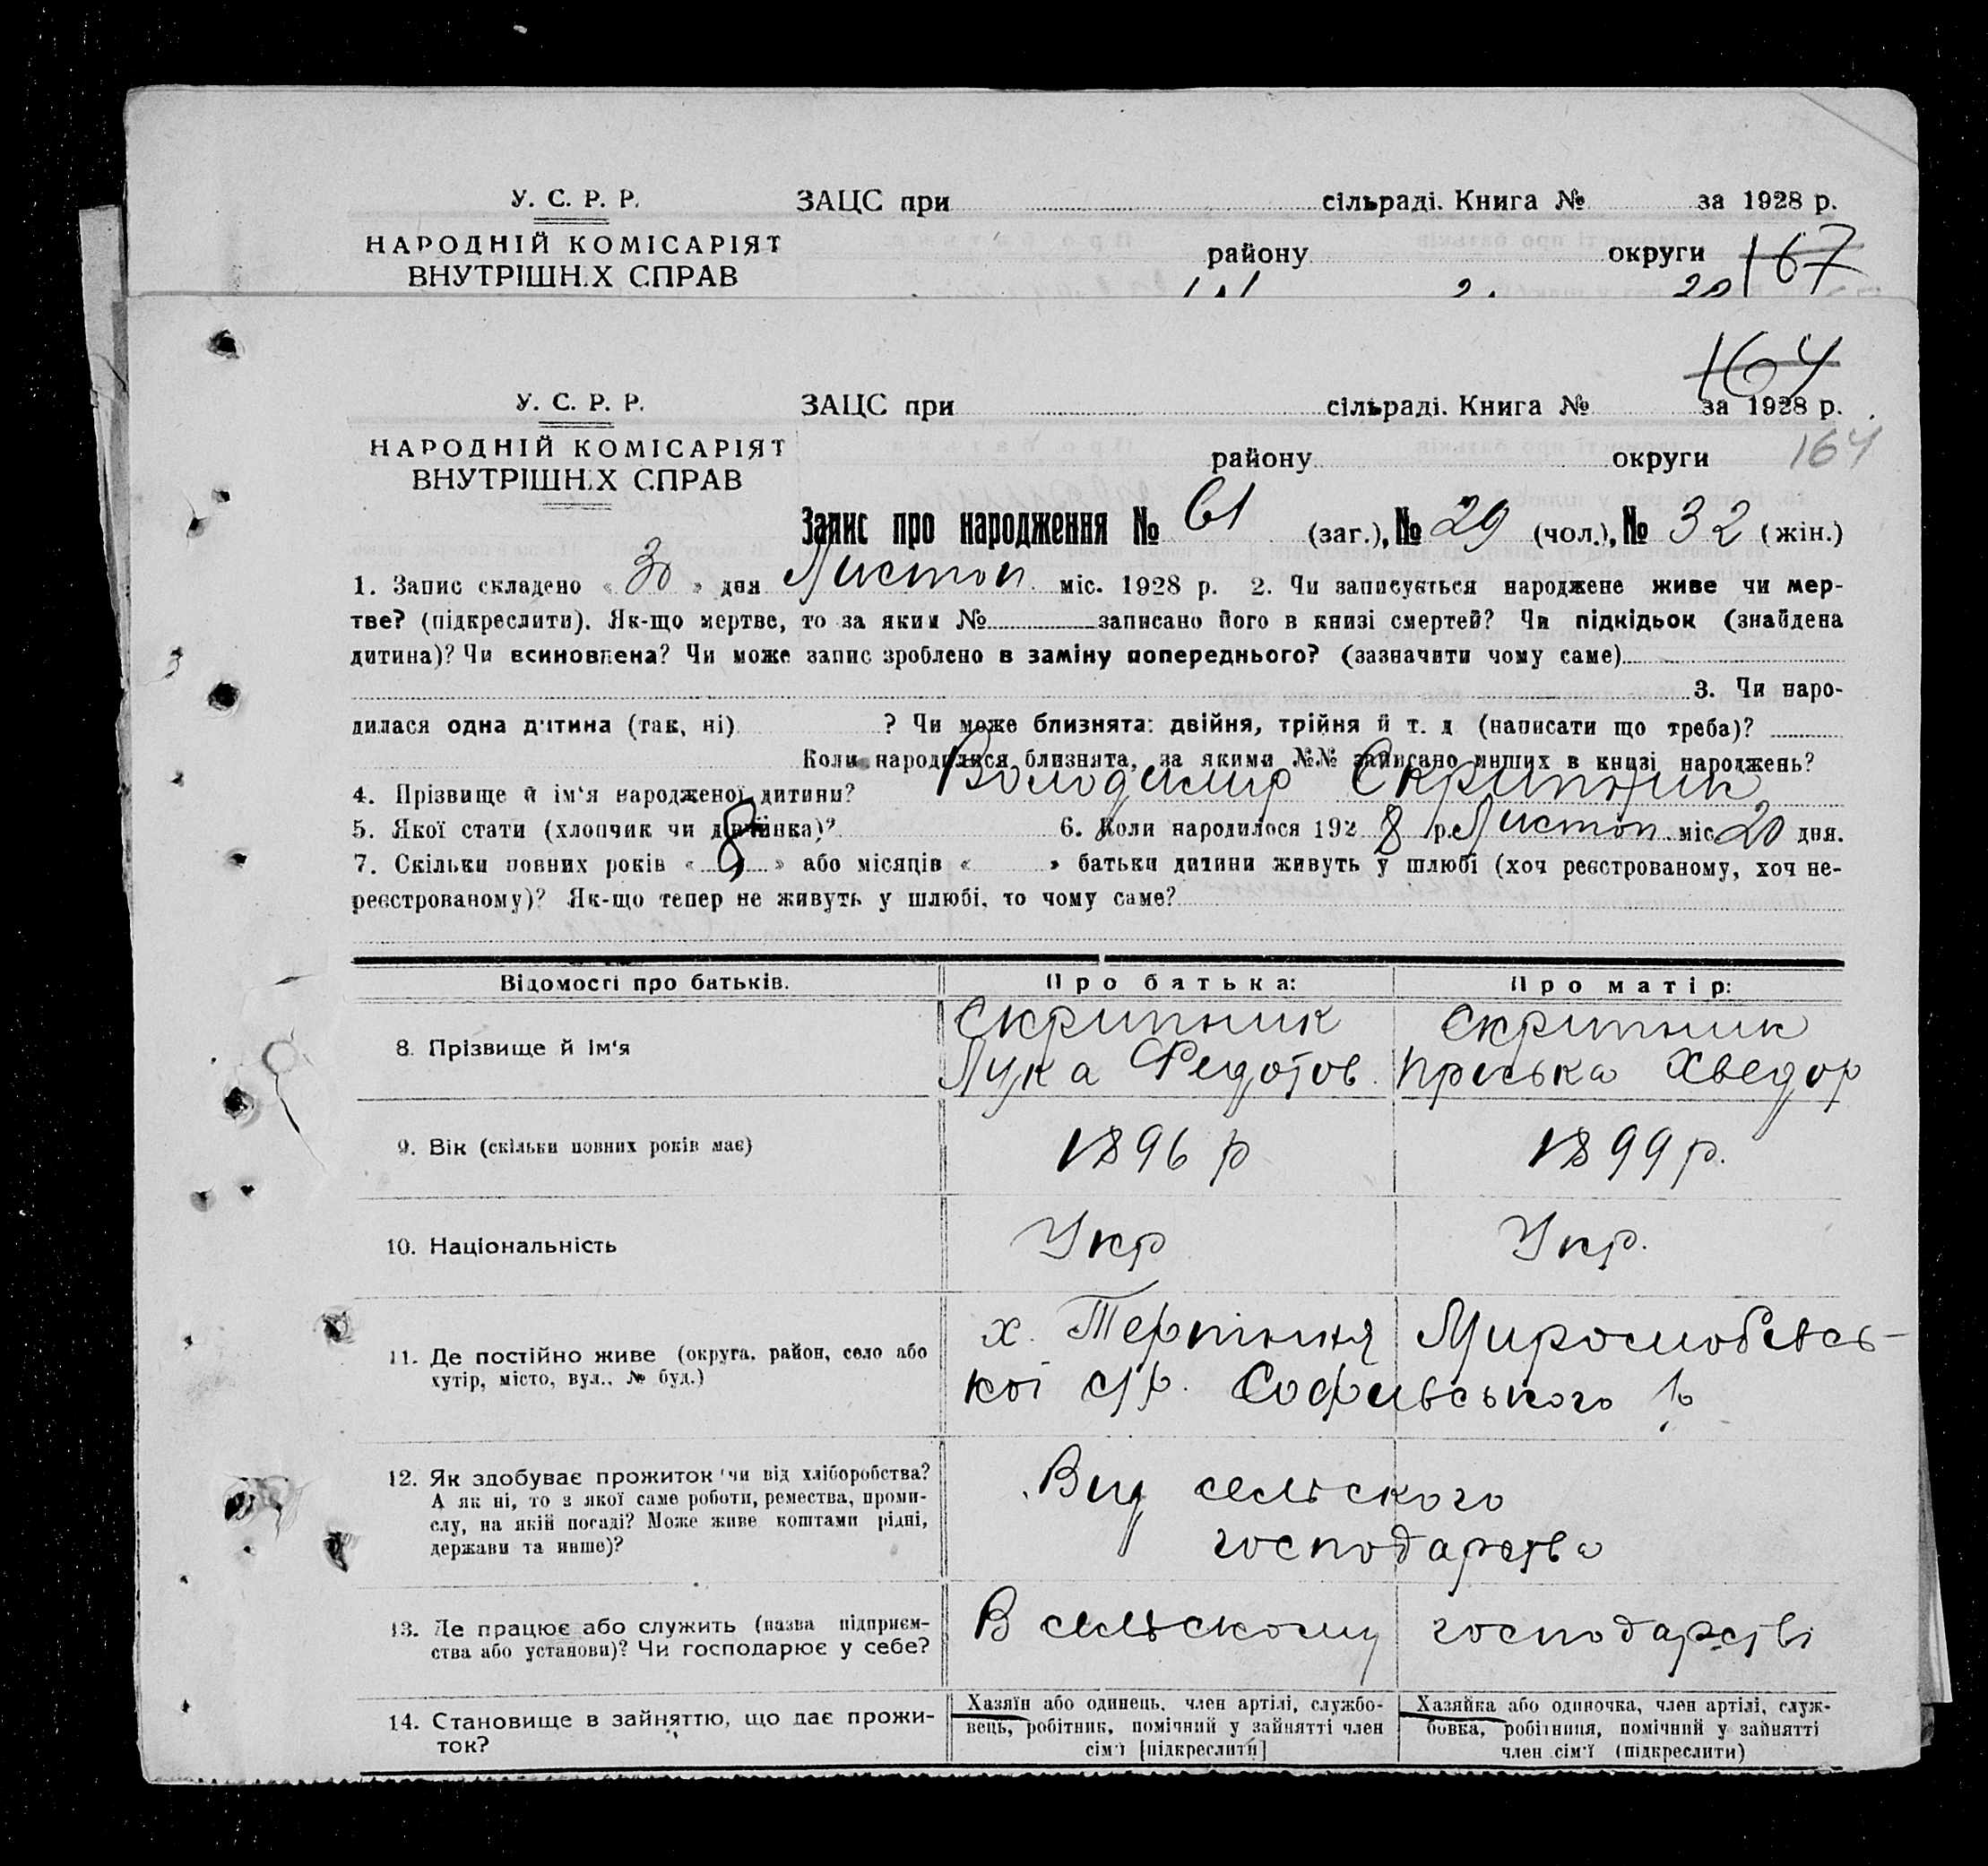 У. С. Р. Р. ЗАЦС при сільраді. Книга № за 1928 р.
НАРОДНІЙ КОМІСАРІЯТ району округи 167
ВНУТРІШН.Х СПРАВ
164
У. С. Р. Р. ЗАЦС при сільраді. Книга № за 1928 р.
НАРОДНІЙ КОМІСАРІЯТ району округи 164
ВНУТРІШН.Х СПРАВ
Запис про народження № 61 (заг.), № 29 (чол.), № 32 (жін.)
1. Запис складено « 30 » дня Листоп міс. 1928 р. 2. Чи записується народжене живе чи мер-
тве? (підкреслити). Як-що мертве, то за яким № записано його в книзі смертей? Чи підкідьок (знайдена
дитина)? Чи всиновлена? Чи може запис зроблено в заміну попереднього? (зазначити чому саме)
3. Чи наро-
дилася одна дитина (так, ні) ? Чи може близнята: двійня, трійня й т. д (написати що треба)?
Коли народилися близнята, за якими №№ записано инших в книзі народжень?
4. Прізвище й ім'я народженої дитини? Володимир Скрипник
5. Якої стати (хлопчик чи дівчинка)? 6. Коли народилося 192 8 р. Листоп міс. 20 дня.
7. Скільки повних років « 9 » або місяців « » батьки дитини живуть у шлюбі (хоч реєстрованому, хоч не-
реєстрованому)? Як-що тепер не живуть у шлюбі, то чому саме?
Відомості про батьків. Про батька: Про матір:
8. Прізвище й ім'я Скрипник Лука Федотов. Скрипник Приська Хведор
9. Вік (скільки повних років має) 1896 р 1899 р.
10. Національність Укр Укр.
11. Де постійно живе (округа, район, село або
хутір, місто, вул., № буд.)
х. Терпіння Миролюбівсь-
кої с/р. Софиівського р
12. Як здобуває прожиток чи від хліборобства?
А як ні, то з якої саме роботи, ремества, проми-
слу, на якій посаді? Може живе коштами рідні,
держави та инше)?
Вид сельского
господарства
13. Де працює або служить (назва підприєм-
ства або установи)? Чи господарює у себе?
В сельскому господарстві
14. Становище в зайняттю, що дає прожи-
ток?
Хазяїн або одинець, член артілі, службо-
вець, робітник, помічний у зайнятті член
сім'ї [підкреслити]
Хазяйка або одиночка, член артілі, служ-
бовка, робітниця, помічний у зайнятті
член сім'ї (підкреслити)